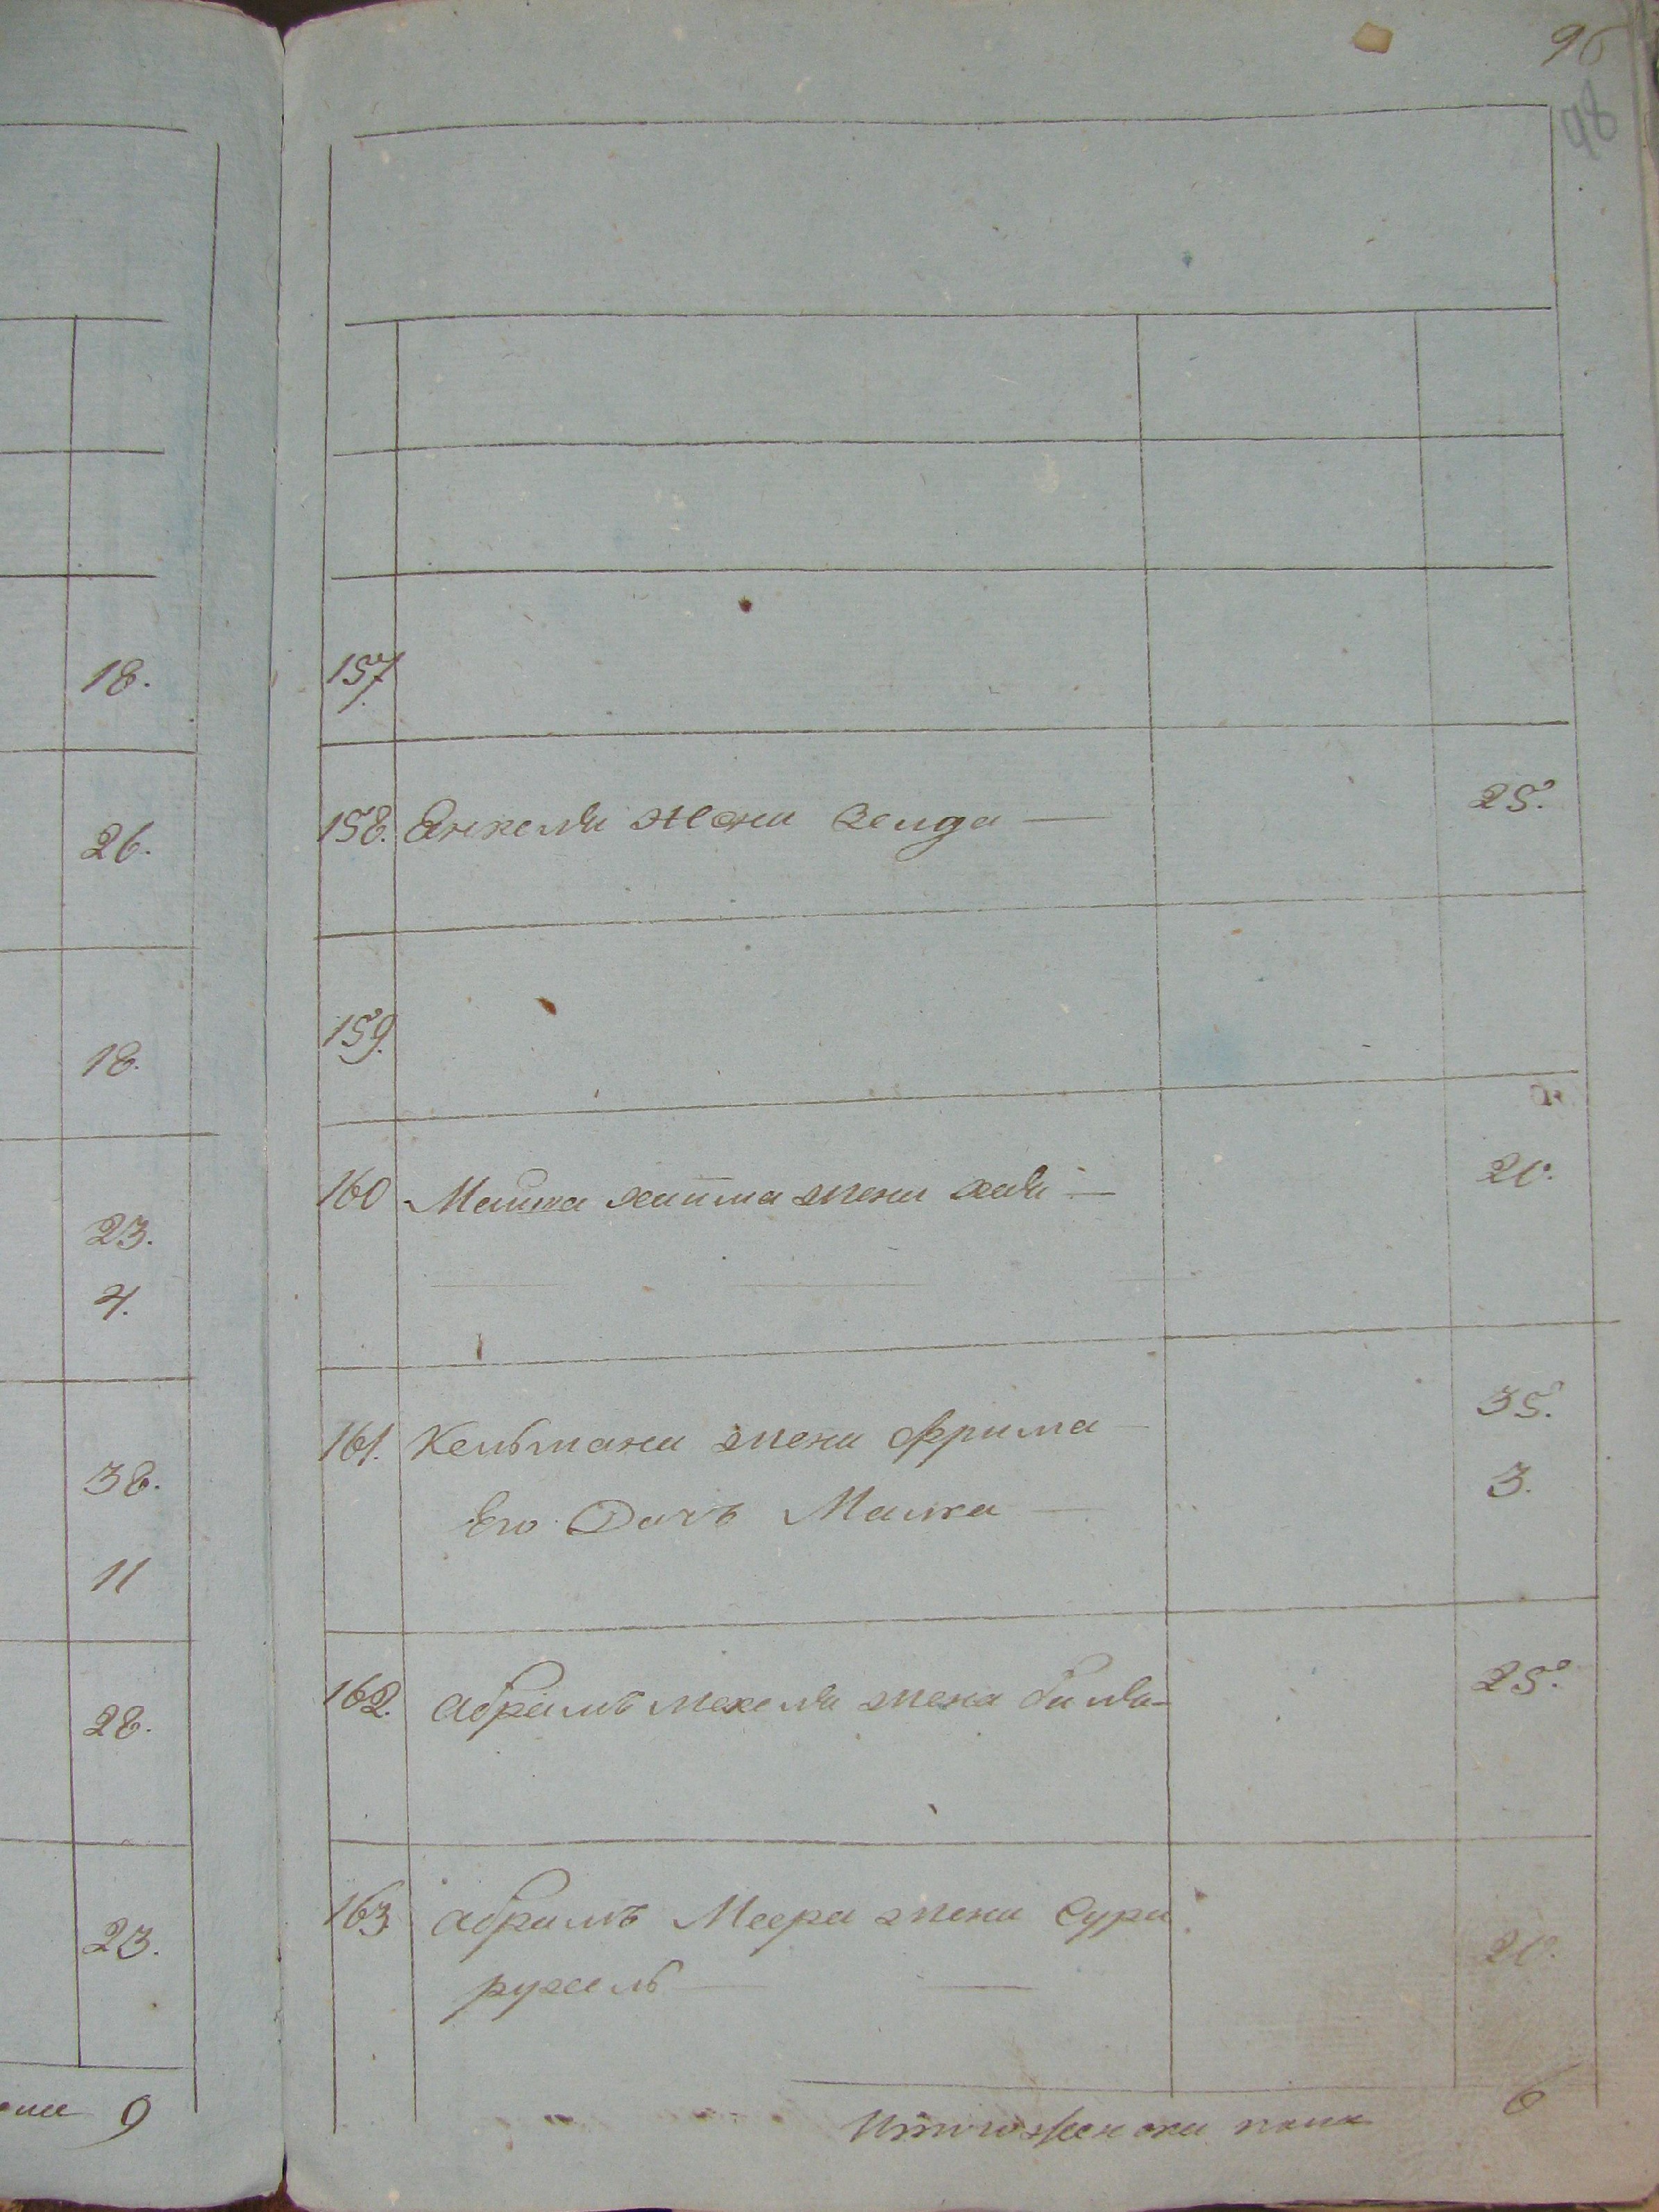 96
98
18.
26.
18.
23.
4.
38.
11
28.
23.
9
157.
158. Янкеля жена Зелда — 25.
159.
160 Мошка хаима жена хая — 20.
161. Кельмана жена Фрима — 35.
Его Дочь Малка — 3.
162. Абрамъ мехеля жена баля — 25.
163 Абрамъ Меера жена Сура
рухель — 20.
Итого женска пола 6